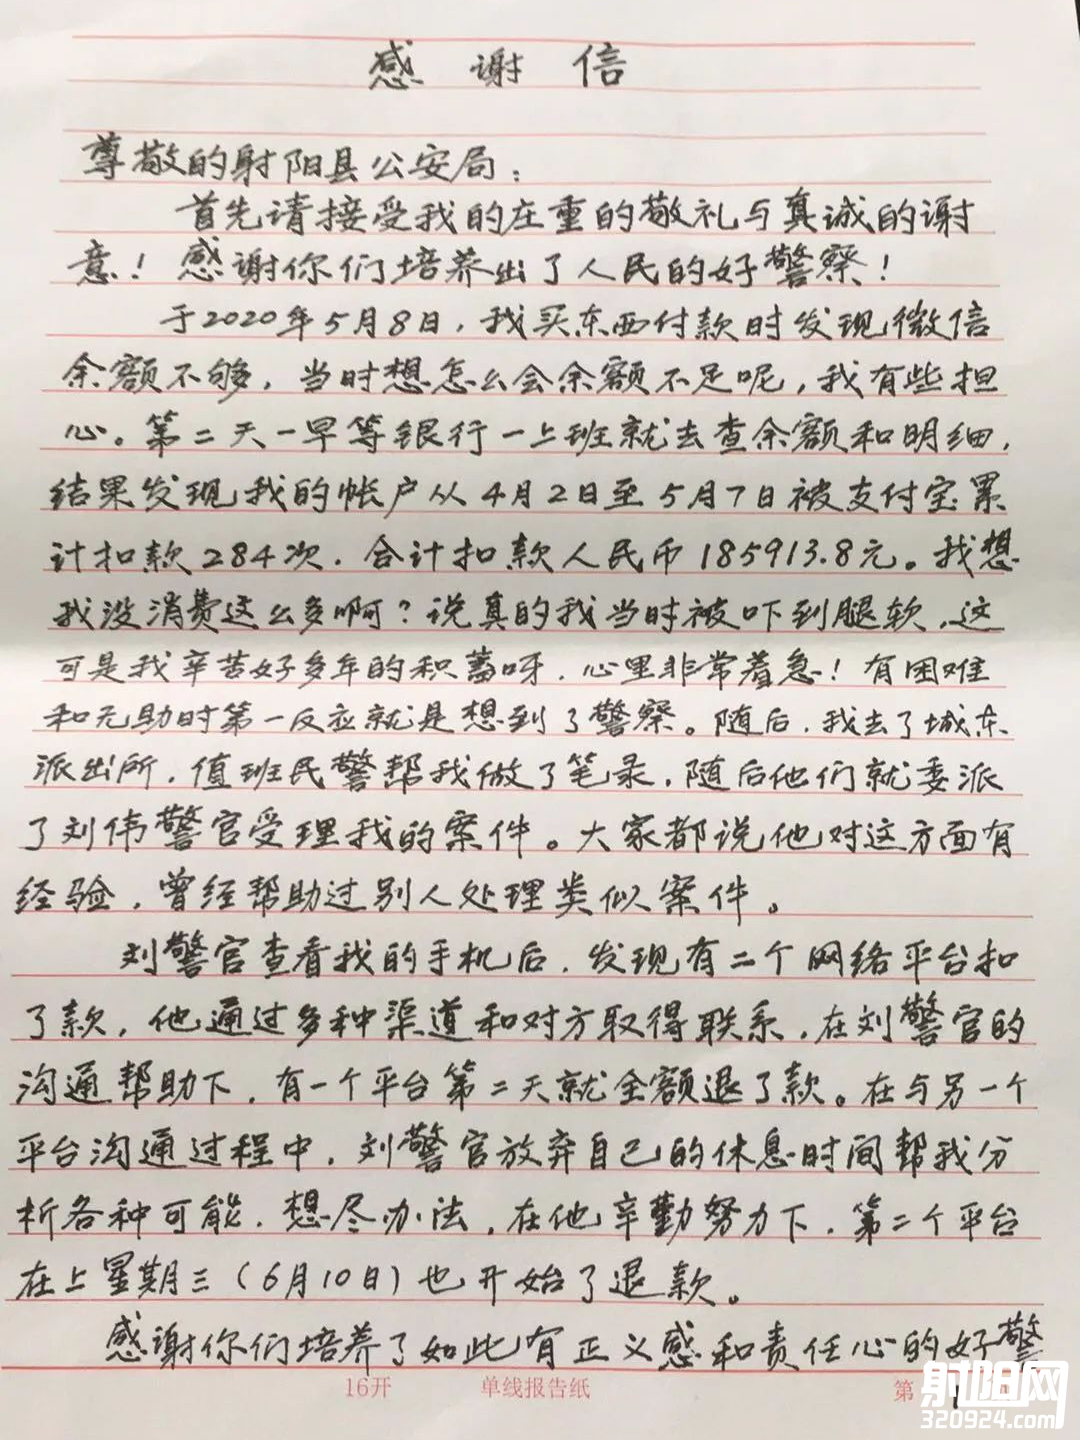 感谢信
尊敬的射阳县公安局：
首先请接受我的庄重的敬礼与真诚的谢
意！感谢你们培养出了人民的好警察！
于2020年5月8日，我买东西付款时发现微信
余额不够，当时想怎么会余额不足呢，我有些担
心。第二天一早等银行一上班就去查余额和明细，
结果发现我的帐户从4月2日至5月7日被支付宝累
计扣款284次．合计扣款人民币185913.8元。我想
我没消费这么多啊？说真的我当时被吓到腿软，这
可是我辛苦好多年的积蓄呀．心里非常着急！有困难
和无助时第一反应就是想到了警察。随后，我去了城东
派出所，值班民警帮我做了笔录，随后他们就委派
了刘伟警官受理我的案件。大家都说他对这方面有
经验，曾经帮助过别人处理类似案件。
刘警官查看我的手机后，发现有二个网络平台扣
了款，他通过多种渠道和对方取得联系，在刘警官的
沟通帮助下，有一个平台第二天就全额退了款。在与另一个
平台沟通过程中，刘警官放弃自己的休息时间帮我分
析各种可能．想尽办法，在他辛勤努力下．第二个平台
在上星期三（6月10日）也开始了退款。
感谢你们培养了如此有正义感和责任心的好警
16开 单线报告纸 第1
射阳网
320924.com